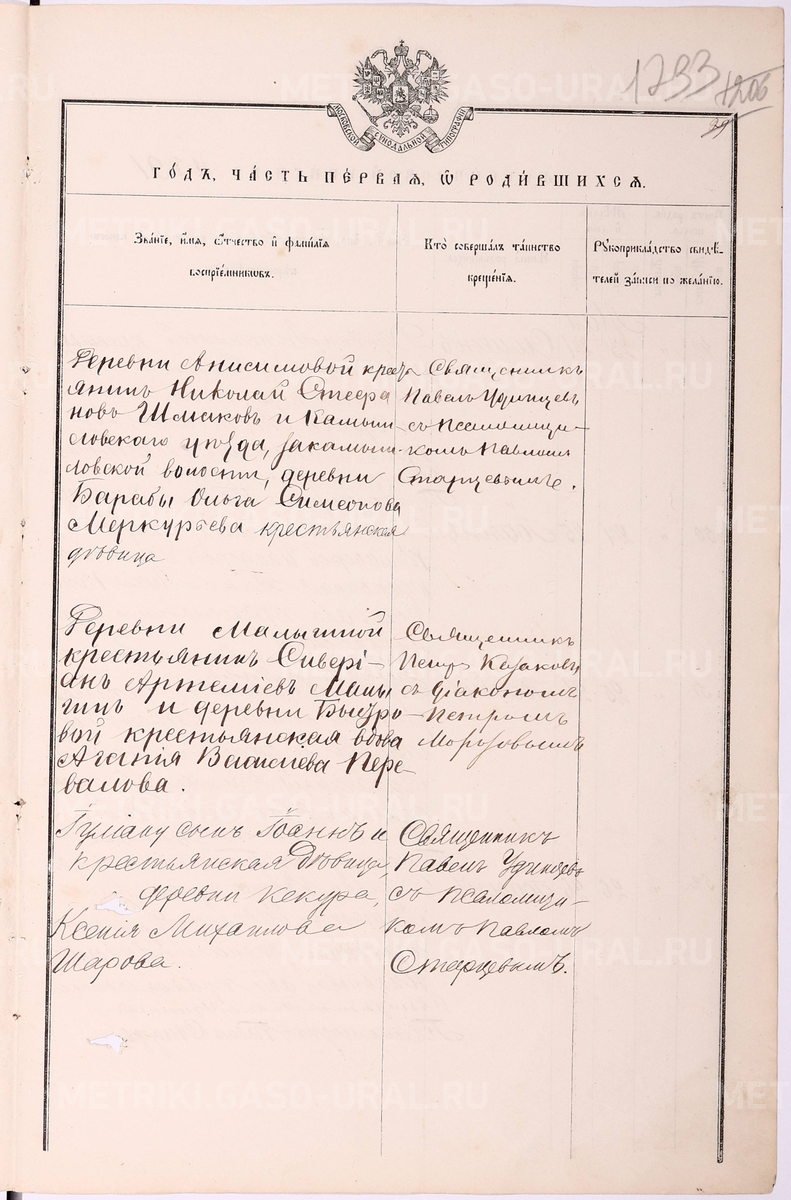 1293
1206
39
МОСКОВСКОЙ СѴНОДАЛЬНОЙ ТИПОГРАФІИ
ГО́ДЪ, ЧА́СТЬ ПЕ́РВАЯ, Ѡ҆ РОДИ́ВШИХСѦ.
Зва́нїе, и҆́мѧ, ѻ҆́тчество и҆ фамѝлїѧ
воспрїе́мниковъ.
Кто̀ соверша́лъ та́инство
креще́нїѧ.
Рꙋкоприкла́дство свидѣ́-
телей за́писи по жела́нїю.
Деревни Анисимовой кресть
янинъ Николай Стефа
новъ Шмаковъ и Камыш
ловскаго уѣзда, Закамыш-
ловской волости, деревни
Барабы Ольга Симеонова
Меркурьева крестьянская
дѣвица
Священникъ
Павелъ Удинцевъ
съ псаломщи-
комъ Павломъ
Старцевымъ.
Деревни Малыгиной
крестьянинъ Сивері-
анъ Артеміевъ Малы
гинъ и деревни
крестьянская вдова
Агапія Васильева Пере-
валова.
Священникъ
Петръ Казаковъ
съ діакономъ
Петромъ
Морозовымъ
сынъ Іоаннъ и
крестьянская дѣвица
деревни Кекура,
Ксенія Михаилова
Шарова.
Священникъ
Павелъ Удинцевъ
съ псаломщи-
комъ Павломъ
Старцевымъ.
METRIKI.GASO-URAL.RU